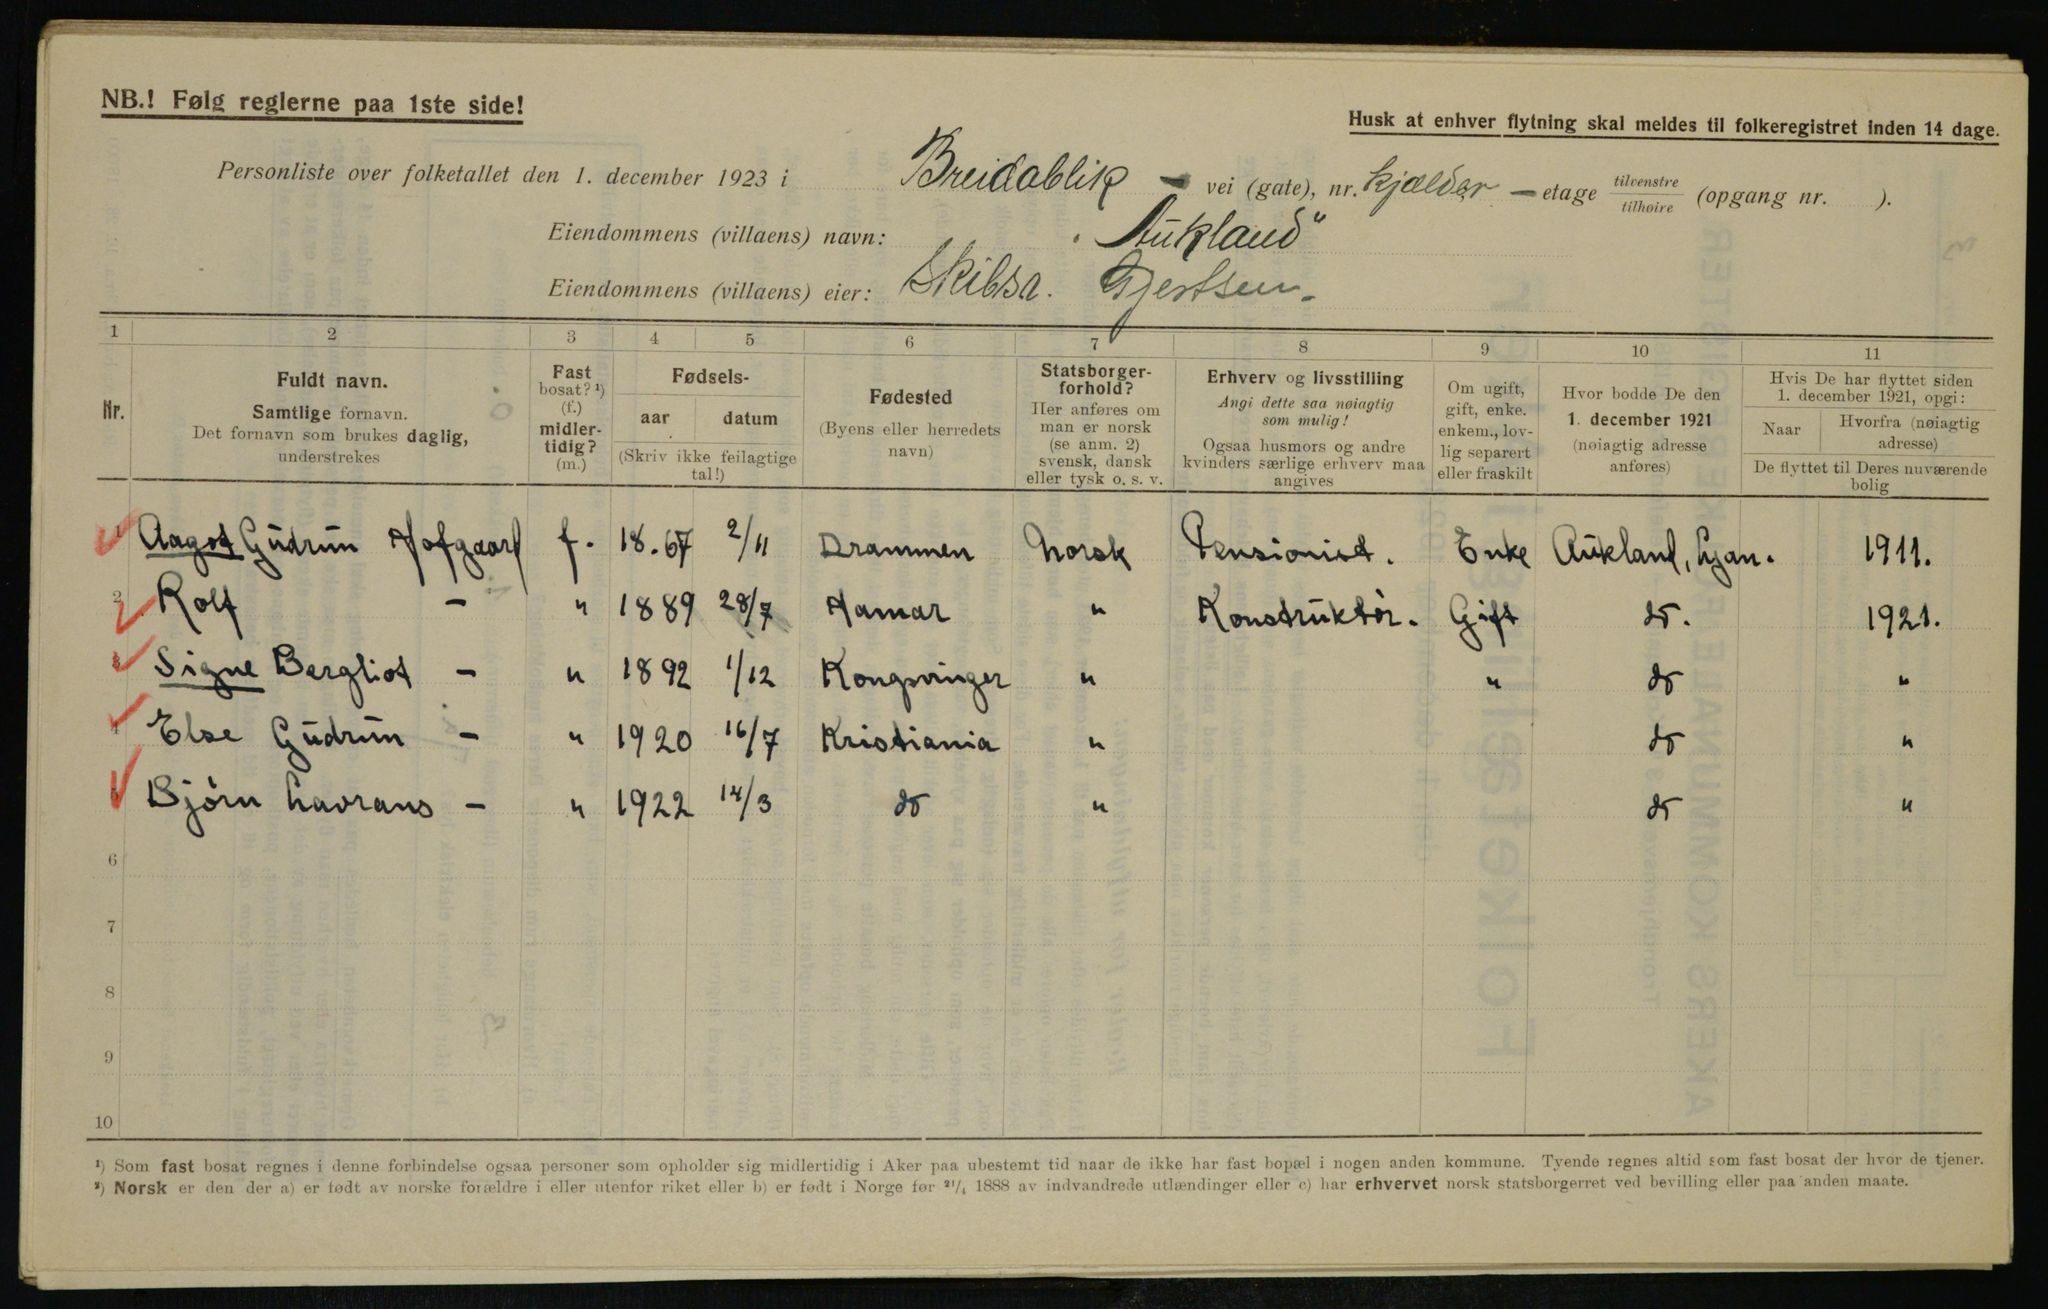 NB.! Følg reglerne paa 1ste side!
Husk at enhver flytning skal meldes til folkeregistret inden 14 dage.
Personliste over folketallet den 1. december 1923 i Breidablik — vei (gate), nr. Kjælder — etage tilvenstre tilhøire (opgang nr. ).
Eiendommens (villaens) navn: „Aukland"
Eiendommens (villaens) eier: Skibsr. Gjertsen.
1 2 3 4 5 6 7 8 9 10 11
Nr.
Fuldt navn.
Samtlige fornavn.
Det fornavn som brukes daglig,
understrekes
Fast
bosat? ¹)
(f.)
midler-
tidig?
(m.)
Fødsels-
aar datum
(Skriv ikke feilagtige
tal!)
Fødested
(Byens eller herredets
navn)
Statsborger-
forhold?
Her anføres om
man er norsk
(se anm. 2)
svensk, dansk
eller tysk o. s. v.
Erhverv og livsstilling
Angi dette saa nøiagtig
som mulig!
Ogsaa husmors og andre
kvinders særlige erhverv maa
angives
Om ugift,
gift, enke.
enkem., lov-
lig separert
eller fraskilt
Hvor bodde De den
1. december 1921
(nøiagtig adresse
anføres)
Hvis De har flyttet siden
1. december 1921, opgi:
Naar Hvorfra (nøiagtig
adresse)
De flyttet til Deres nuværende
bolig
1 Aagot Gudrun Hofgaard f. 18.67 2/11 Drammen Norsk Pensionist. Enke Aukland, Ljan. 1911.
2 Rolf – " 1889 28/7 Hamar " Konstruktør. Gift do. 1921.
3 Signe Bergliot – " 1892 1/12 Kongsvinger " " do "
4 Else Gudrun – " 1920 16/7 Kristiania " do "
5 Bjørn Lavrans – " 1922 14/3 do " do "
6
7
8
9
10
¹) Som fast bosat regnes i denne forbindelse ogsaa personer som opholder sig midlertidig i Aker paa ubestemt tid naar de ikke har fast bopæl i nogen anden kommune. Tyende regnes altid som fast bosat der hvor de tjener.
²) Norsk er den der a) er født av norske forældre i eller utenfor riket eller b) er født i Norge før ²¹/₄ 1888 av indvandrede utlændinger eller c) har erhvervet norsk statsborgerret ved bevilling eller paa anden maate.